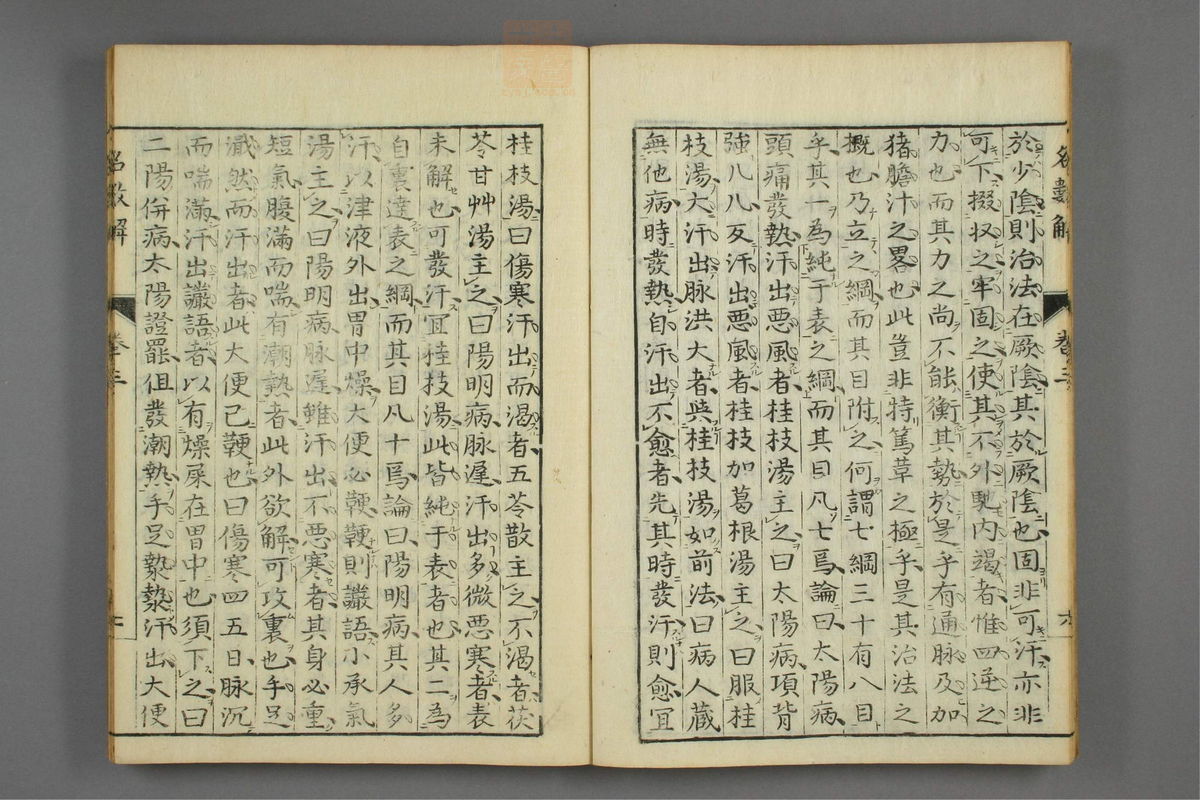 於少陰則治法在厥陰其於厥陰也固非可汗亦非
可下掇収之牢固之使其不外馳内竭者惟四逆之
力也而其力之尚不能衡其勢於是乎有通脉及加
猪膽汁之畧也此豈非特篤草之極乎是其治法之
概也乃立之綱而其目附之何謂七綱三十有八目
乎其一為純于表之綱而其目凡七焉論曰太陽病
頭痛發熱汗出悪風者桂枝湯主之曰太陽病項背
強几几反汗出悪風者桂枝加葛根湯主之曰服桂
枝湯大汗出脉洪大者與桂枝湯如前法曰病人蔵
無他病時發熱自汗出不愈者先其時發汗則愈冝
名數解
卷三
六
桂枝湯曰傷寒汗出而渴者五苓散主之不渴者茯
苓甘艸湯主之曰陽明病脉遲汗出多微悪寒者表
未解也可發汗冝桂枝湯此皆純于表者也其二為
自裏達表之綱而其目凡十焉論曰陽明病其人多
汗以津液外出胃中燥大便必鞕鞕則讝語小承氣
湯主之曰陽明病脉遲雖汗出不悪寒者其身必重
短氣腹滿而喘有潮熱者此外欲解可攻裏也手足
濈然而汗出者此大便已鞕也曰傷寒四五日脉沉
而喘滿汗出讝語者以有燥屎在胃中也須下之曰
二陽併病太陽證罷但發潮熱手足漐漐汗出大便
名數解
卷三
七